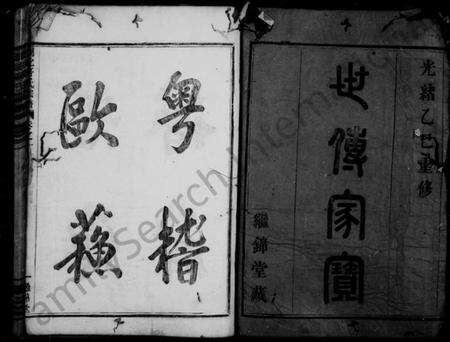 光緒乙巳重修
世傳家寶
繼錦堂藏
粵稽
歐蘓
FamilySearch International